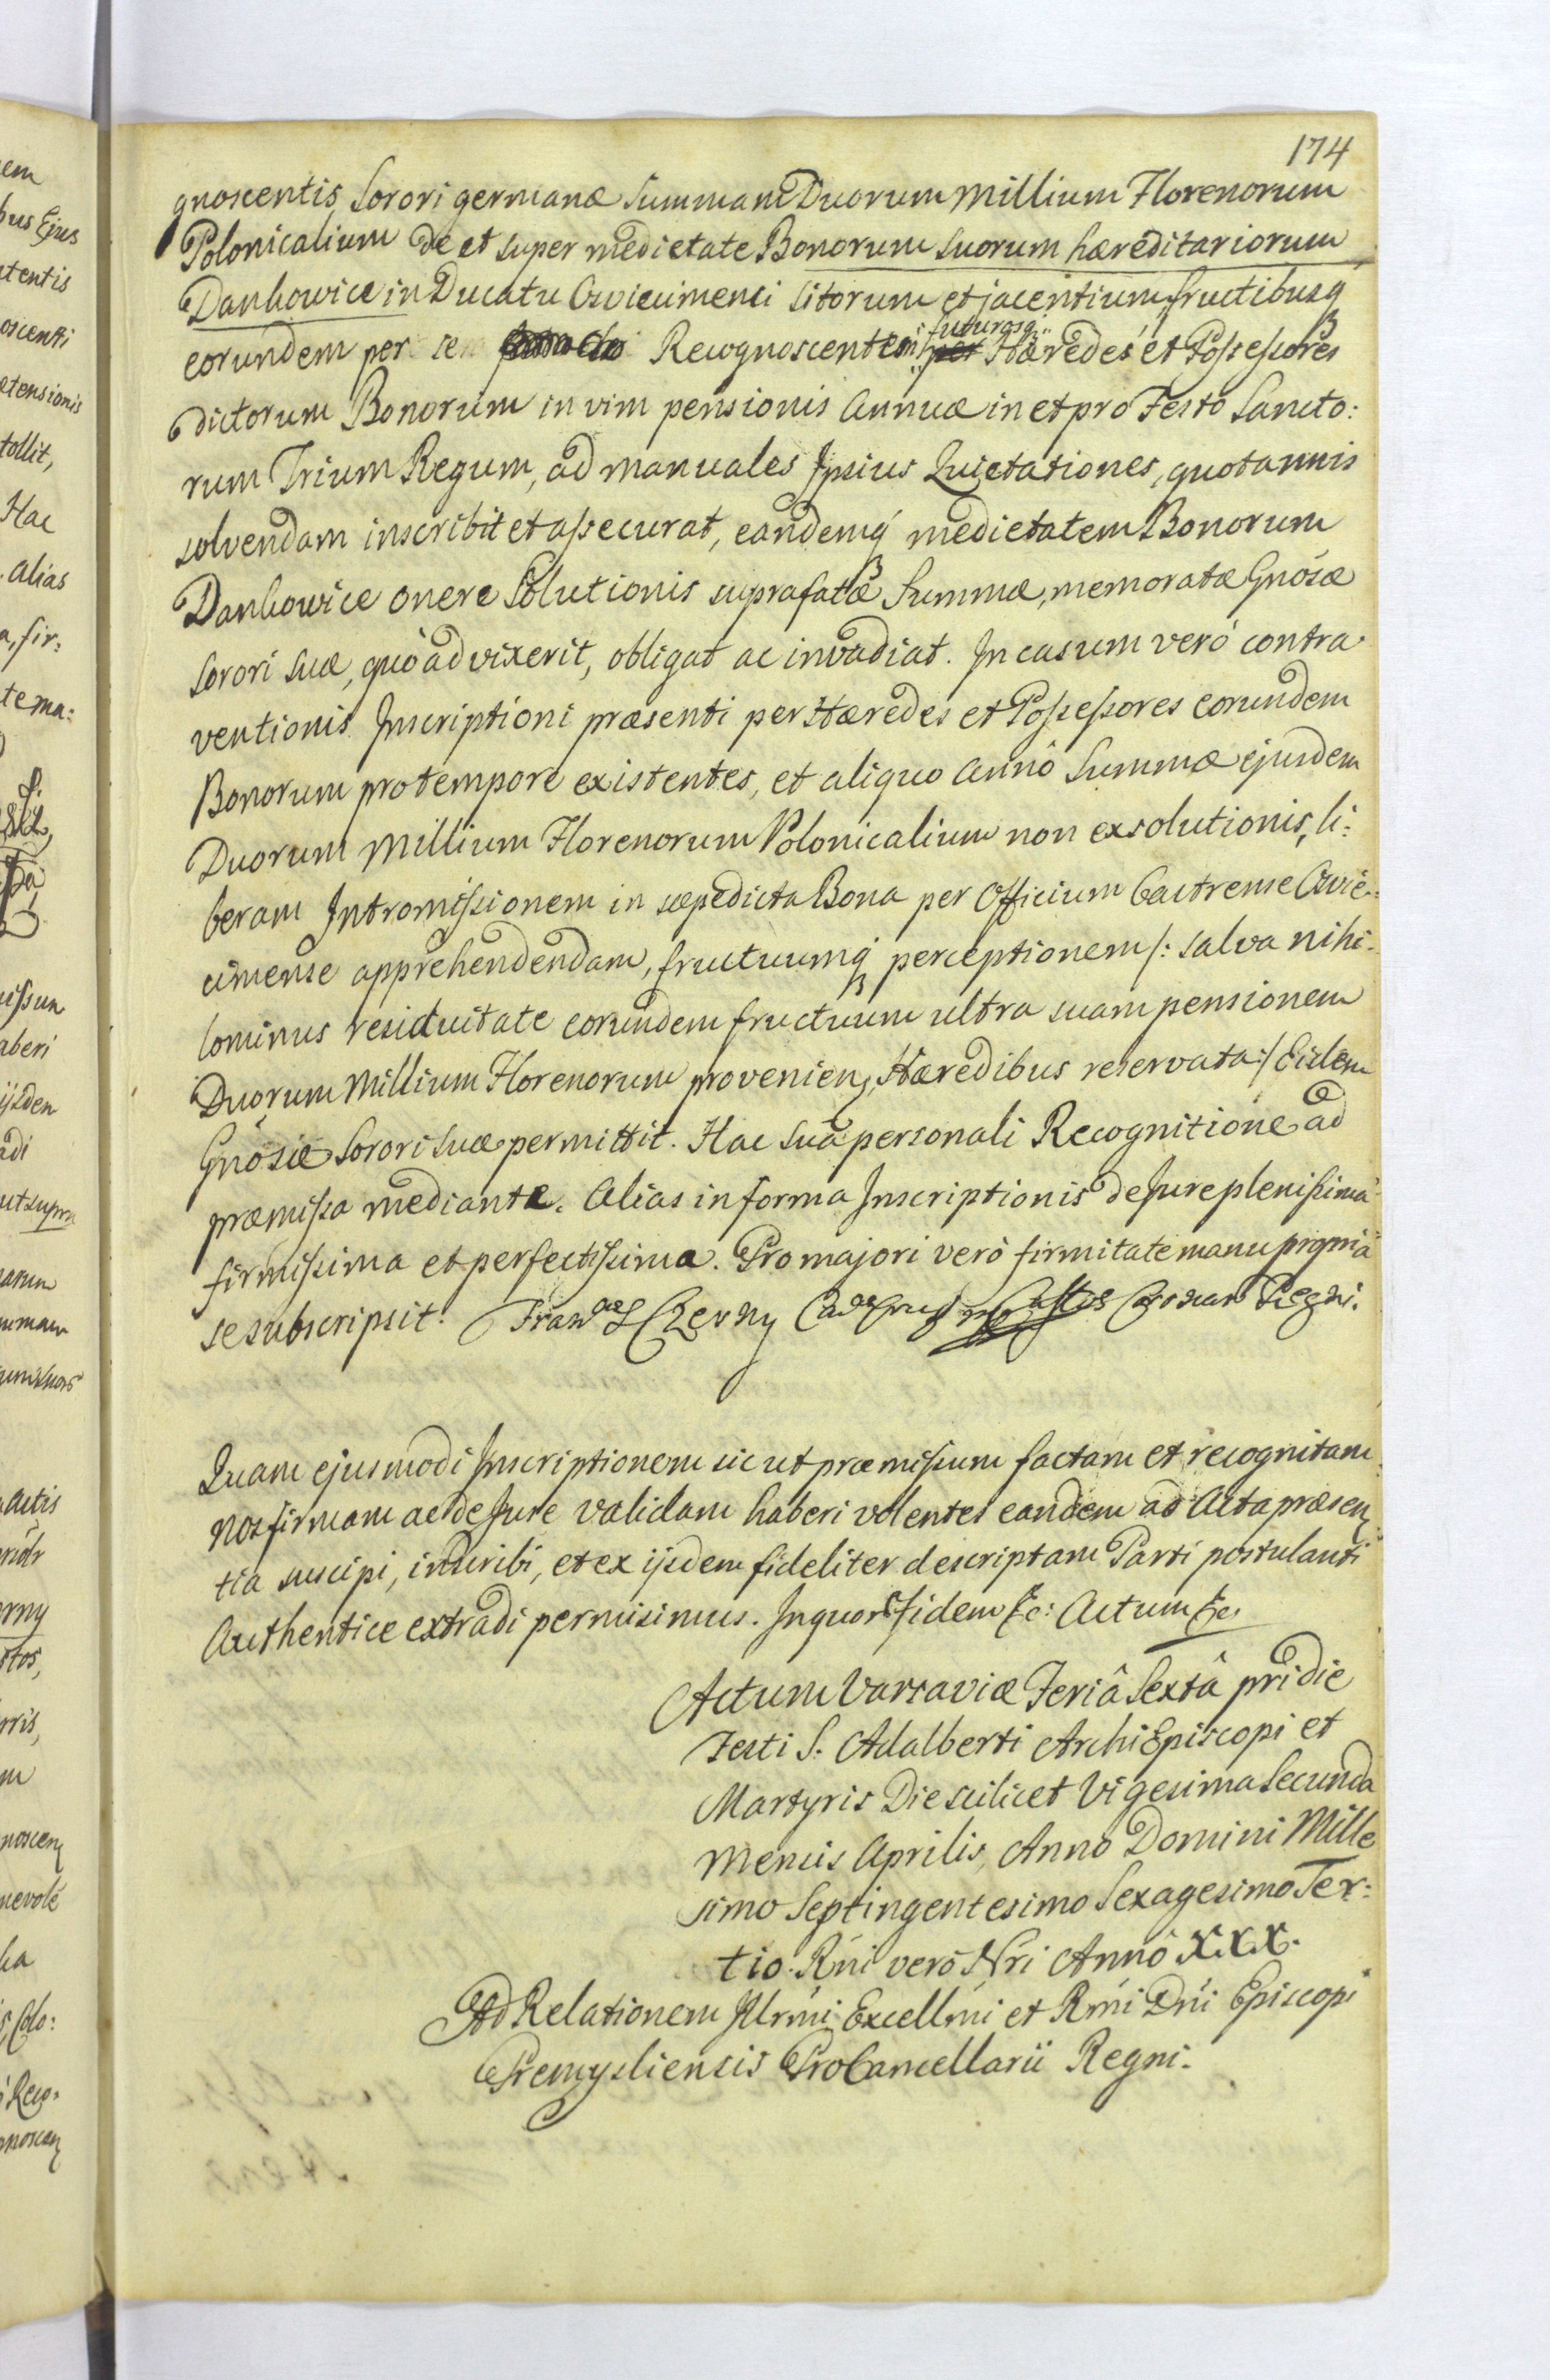 174
gnoscentis, Sorori germanæ Summam Duorum Millium Florenorum
Polonicalium de et super medietate Bonorum suorum hæreditariorum
Dankowice in Ducatu Oswiecimensi sitorum et jacentium, fructibusq
eorundem per se Recognoscentem futurosq: per Hæredes et Possessores
dictorum Bonorum in vim pensionis Annuæ in et pro Festo Sancto:
rum Trium Regum, ad manuales Ipsius Quietationes, quotannis
solvendam inscribit et assecurat, eandemq medietatem Bonorum
Dankowice onere Solutionis suprafatæ Summæ, memoratæ Gnosæ
Sorori suæ, quoad vixerit, obligat ac invadiat. In casum verò contra
ventionis Inscriptioni præsenti per Hæredes et Possessores eorundem
Bonorum pro tempore existentes, et aliquo Annô Summæ ejusdem
Duorum Millium Florenorum Polonicalium non exsolutionis, li:
beram Intromissionem in sæpedicta Bona per Officium Castrense Oswie:
cimense apprehendendam, fructuumq perceptionem /: salva nihi:
lominus residuitate eorundem fructuum ultra suam pensionem
Duorum Millium Florenorum provenien, Hæredibus reservata :/ Eidem
Gnosæ Sorori suæ permittit. Hac suâ personali Recognitione ad
præmissa mediante. Alias in forma Inscriptionis de Jure plenissima
firmissima et perfectissima. Pro majori verò firmitate manu propria
se subscripsit. Fran Czerny Regni.
Quam ejusmodi Inscriptionem sic ut præmissum factam et recognitam
nos firmam ac de Jure validam haberi volentes eandem ad Acta præsen
tia suscipi, inscribi, et ex ijsdem fideliter descriptam Parti postulanti
Authentice extradi permisimus. In quor fidem &c: Actum &c.
Actum Varsaviæ Feriâ Sextâ pridie
Festi S. Adalberti Archi Episcopi et
Martyris Die scilicet Vigesima Secunda
Mensis Aprilis, Anno Domini Mille
simo Septingentesimo Sexagesimo Ter:
tio. Rni verò Nri Annô XXX.
Ad Relationem Illrmi Excellmi et Rmi Dni Episcopi
Premysliensis ProCancellarii Regni.